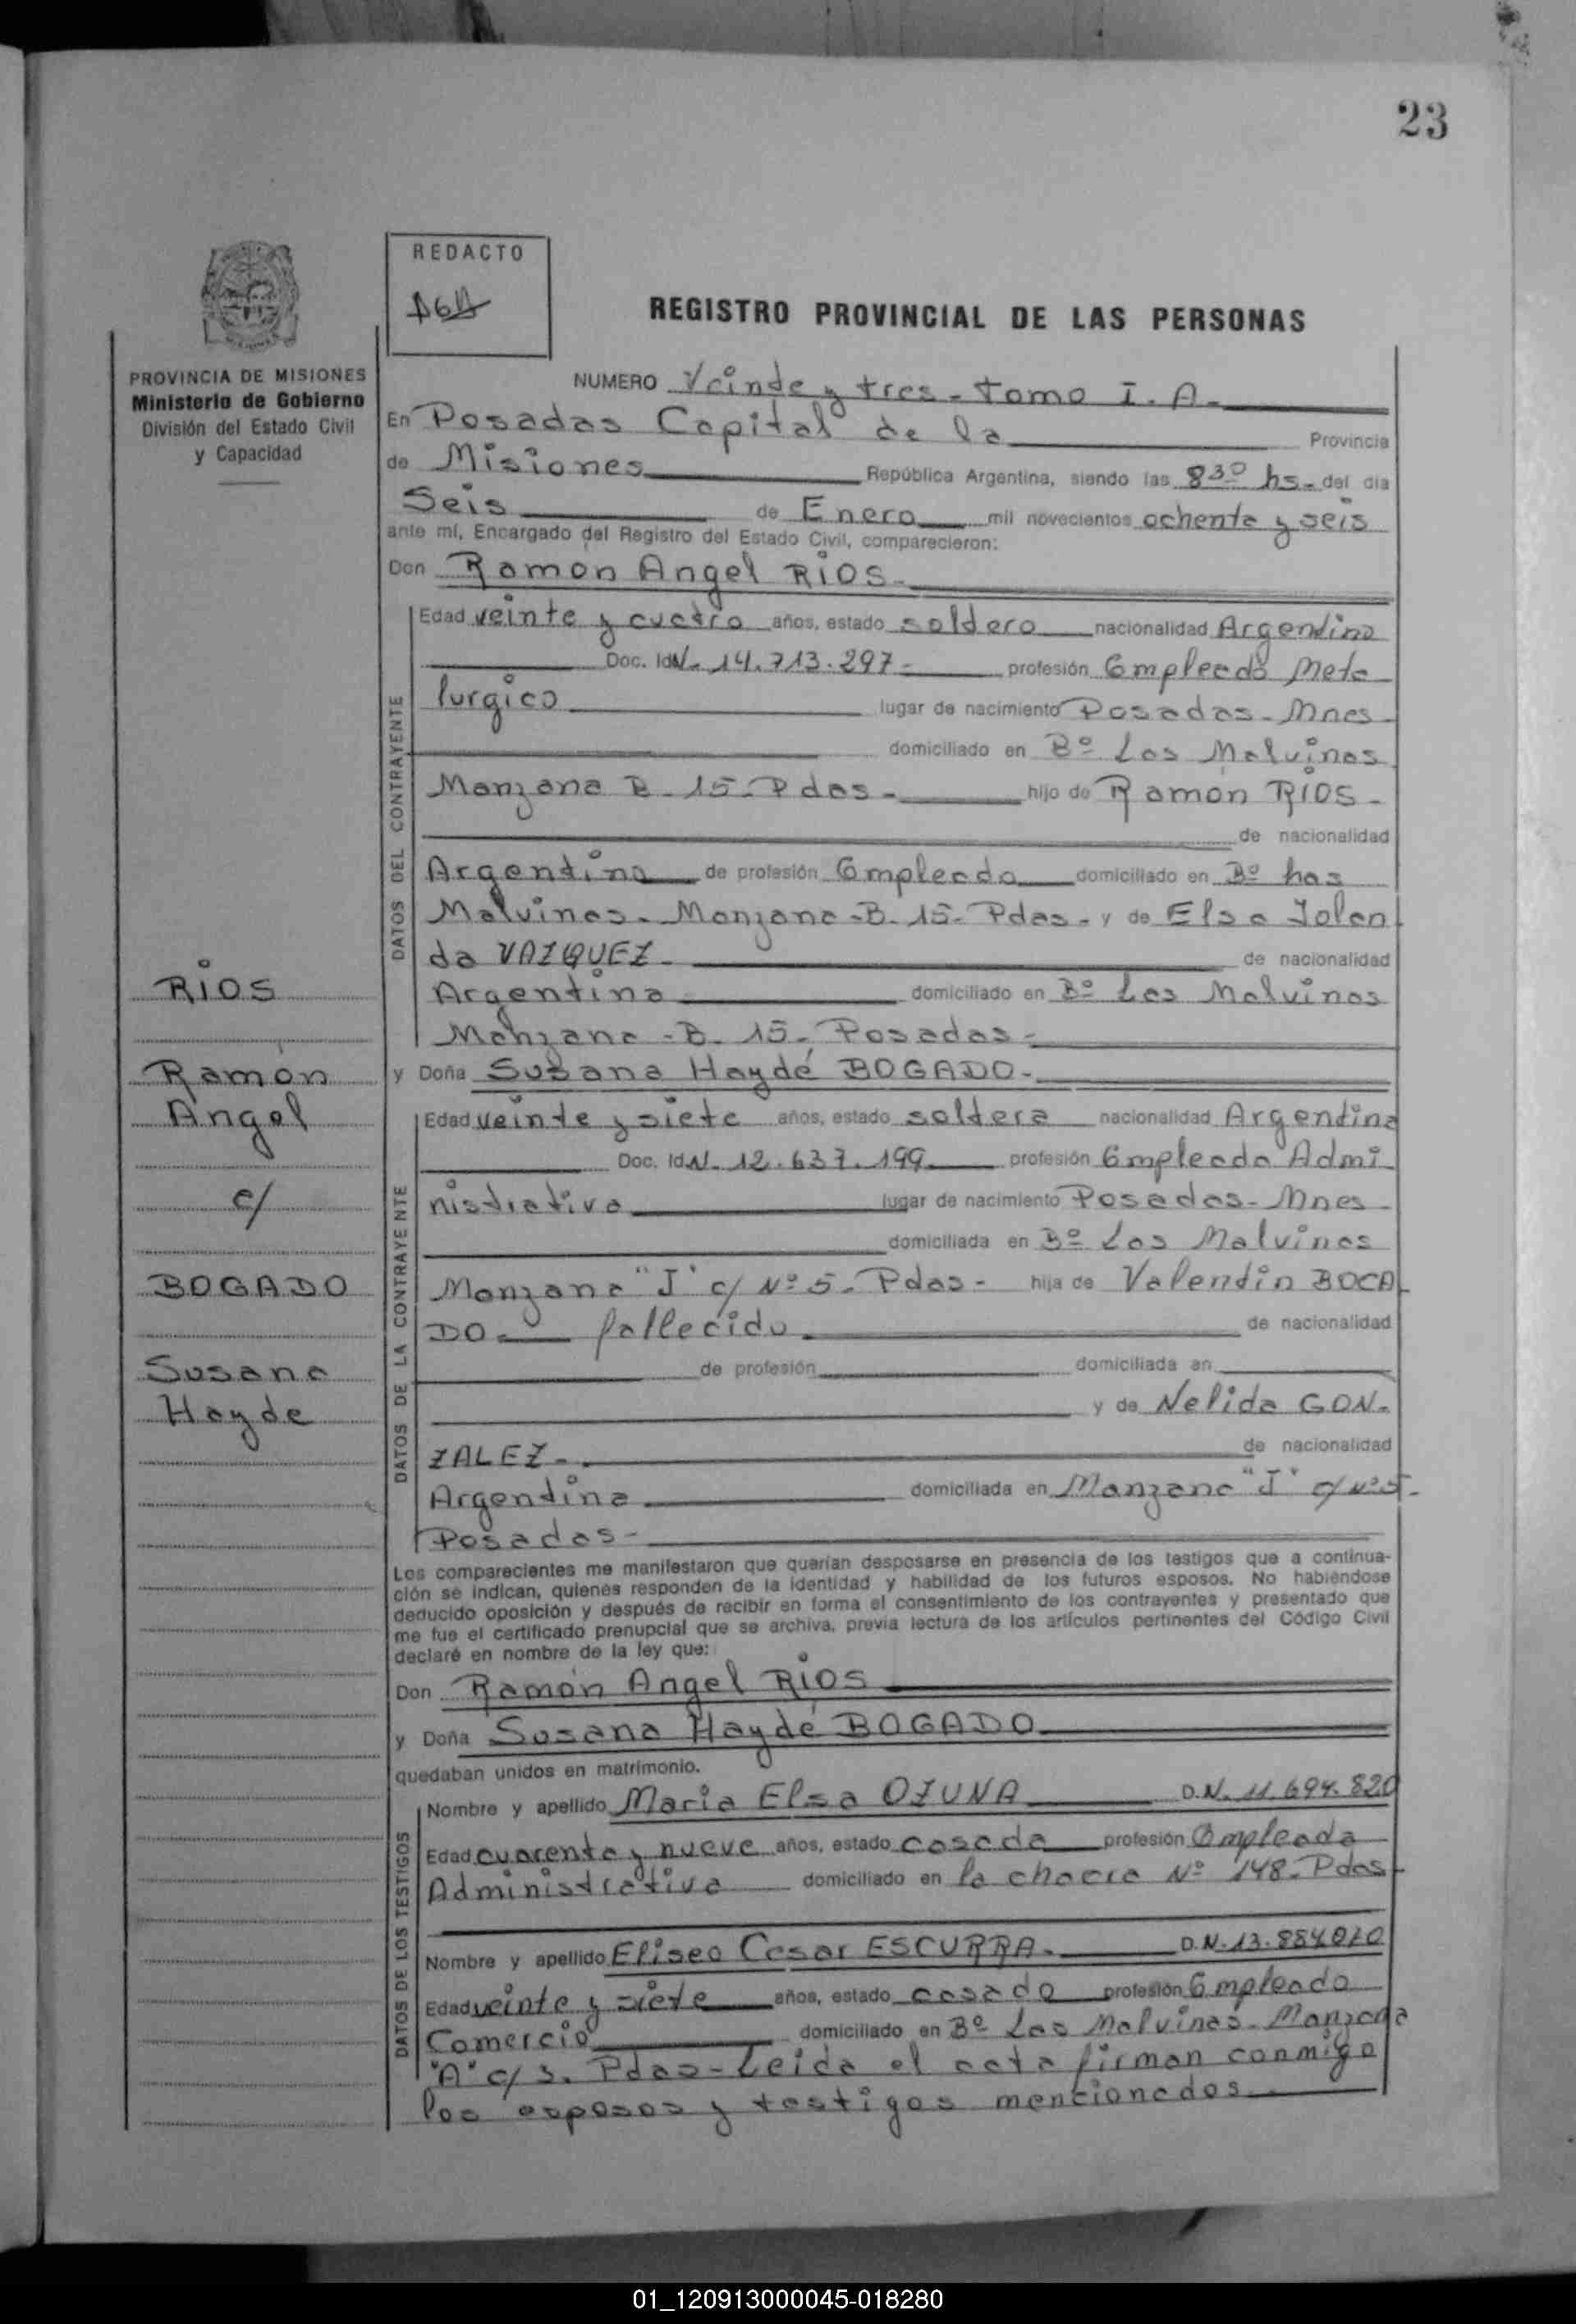 23
REDACTO
REGISTRO PROVINCIAL DE LAS PERSONAS
PROVINCIA DE MISIONES
Ministerio de Gobierno
División del Estado Civil
y Capacidad
NUMERO Veinte y tres - Tomo I. A.
En Posadas Capital de la Provincia
de Misiones República Argentina, siendo las 8 30 hs. del día
Seis de Enero mil novecientos ochenta y seis
ante mí, Encargado del Registro del Estado Civil, comparecieron:
Don Ramón Angel RIOS.
Edad veinte y cuatro años, estado soltero nacionalidad Argentina
Doc. Id N. 14.713.297 - profesión Empleado Meta
lurgico lugar de nacimiento Posadas - Mnes
domiciliado en Bº Las Malvinas
Manzana B - 15 - Pdas - hijo de Ramón RIOS -
de nacionalidad
Argentina de profesión Empleado domiciliado en Bº Las
Malvinas - Manzana - B - 15 - Pdas - y de Elsa Iolan
da VAZQUEZ - de nacionalidad
Argentina domiciliado en Bº Las Malvinas
Manzana - B - 15 - Posadas -
y Doña Susana Haydé BOGADO -
Edad veinte y siete años, estado soltera nacionalidad Argentina
Doc. Id N. 12.637.199 profesión Empleada Admi
nistrativa lugar de nacimiento Posadas - Mnes
domiciliada en Bº Las Malvinas
Manzana "J" c/ Nº 5 - Pdas - hija de Valentín BOGA
DO - fallecido de nacionalidad
de profesión domiciliada en
y de Nelida GON-
ZALEZ - de nacionalidad
Argentina domiciliada en Manzana "J" c/ Nº 5 -
Posadas -
Los comparecientes me manifestaron que querían desposarse en presencia de los testigos que a continua-
ción se indican, quienes responden de la identidad y habilidad de los futuros esposos. No habiéndose
deducido oposición y después de recibir en forma el consentimiento de los contrayentes y presentado que
me fue el certificado prenupcial que se archiva, previa lectura de los artículos pertinentes del Código Civil
declaré en nombre de la ley que:
Don Ramón Angel RIOS
y Doña Susana Haydé BOGADO
quedaban unidos en matrimonio.
Nombre y apellido Maria Elsa OZUNA D.N. 11.694.820
Edad cuarenta y nueve años, estado casada profesión Empleada
Administrativa domiciliado en la chacra Nº 148 - Pdas -
Nombre y apellido Eliseo Cesar ESCURRA - D.N. 13.884.010
Edad veinte y siete años, estado casado profesión Empleado
Comercio domiciliado en Bº Las Malvinas - Manzana
"A" c/ 3. Pdas - Leida el acta firman conmigo
los esposos y testigos mencionados
DATOS DEL CONTRAYENTE
DATOS DE LA CONTRAYENTE
DATOS DE LOS TESTIGOS
RIOS
Ramón
Angel
c/
BOGADO
Susana
Hayde
01_120913000045-018280